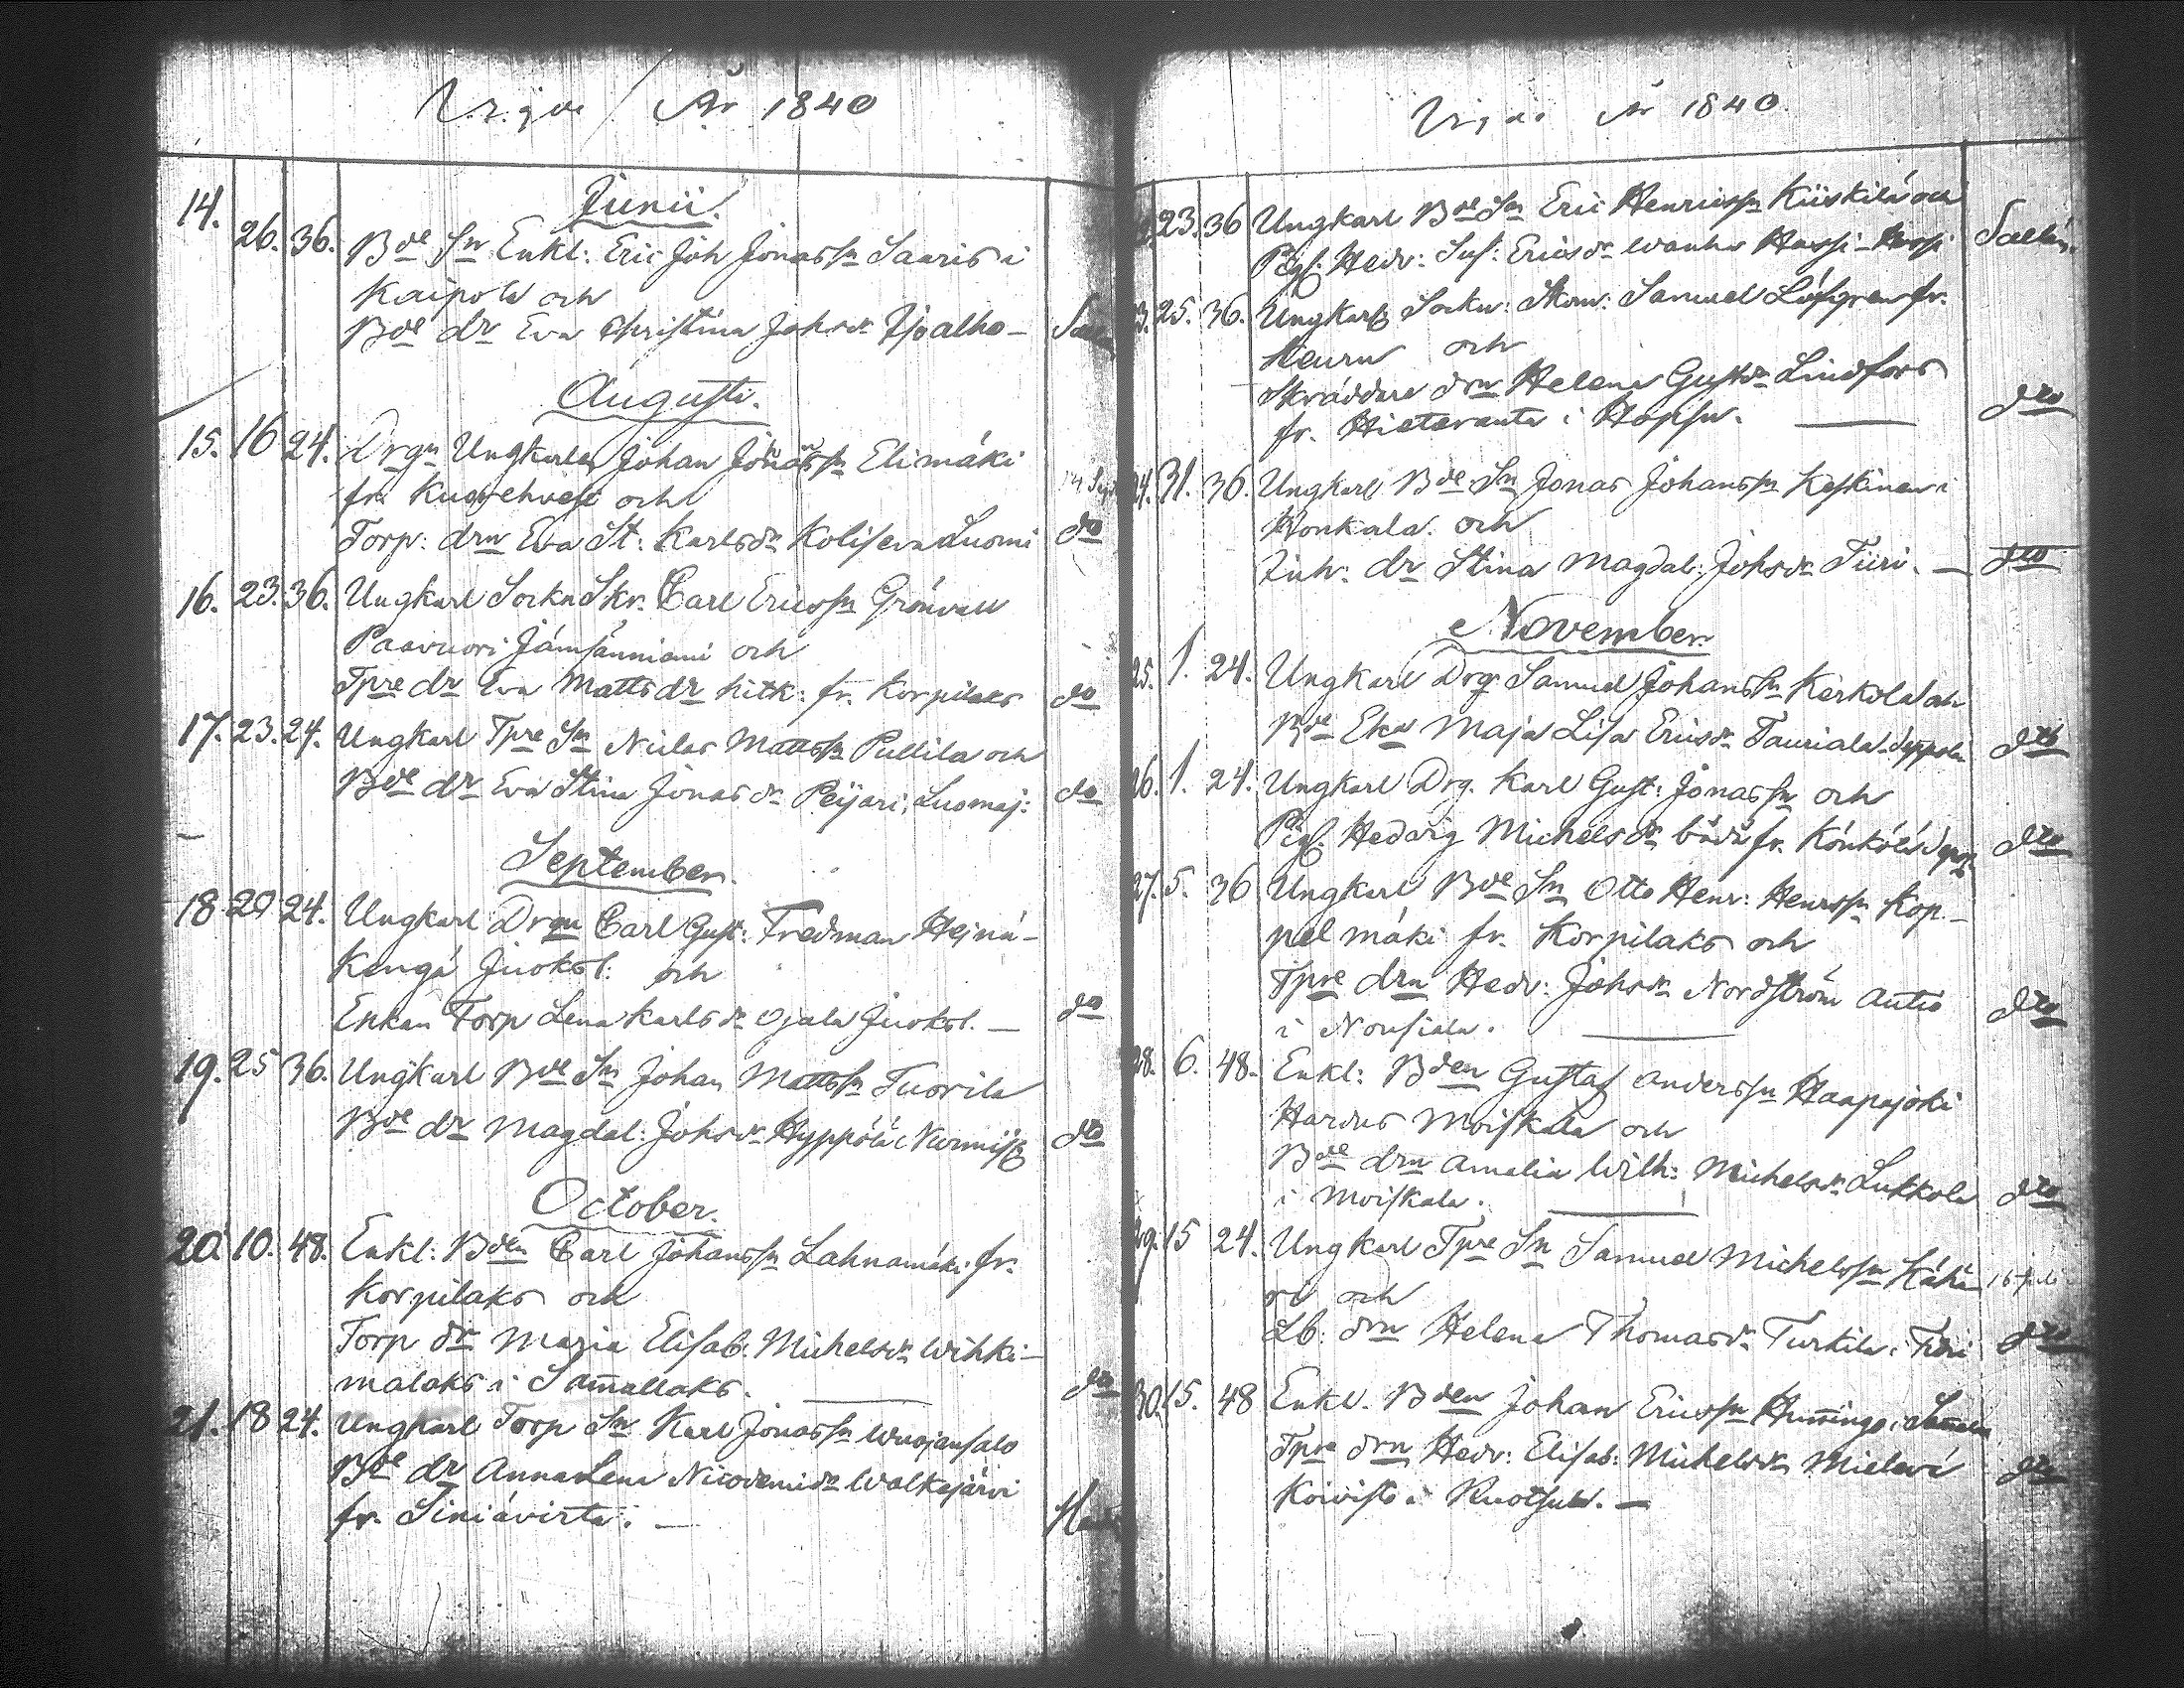 Vigde År 1840
Junii.
14. 26. 36. Bde Sn Enkl: Eric Joh Jonassn Sauris i
Kaipola och
Bde dr Eva Christina Johsdr Ijoalho-
Augusti.
15. 16 24. Drgn Ungkarlen Johan Jonassn Elimäki
fr. Kuorehvesi och
Torp: drn Eva St: Karlsdr Koliseva Luomi do
16. 23. 36. Ungkarl Sockn Skr. Carl Ericssn Grönvall
Paavuori Jämsänniemi och
Tpre dr Eva Mattsdr hitk: fr. Korpilaks do
17. 23. 24. Ungkarl Tpre Sn Niclas Mattssn Pullila och
Bde dr Eva Stina Jonasdr Peijari, Luomaj: do
September.
18 20 24. Ungkarl Drgn Carl Gust: Fredman Hejnä-
Kengä Juoksl: och
Enkan Torp Lena Karlsdr Ojala Juoksl. — do
19. 25 36. Ungkarl Bde Sn Johan Mattssn Tuorila
Bde dr Magdal: Johsdr Hyppölä i Nurmis dto
October.
20. 10. 48. Enkl: Bden Carl Johanssn Lahnamäki fr.
Korpilaks och
Torp dr Maria Elisab. Michelsdr Wihki-
malaks i Sam̄allaks. dto
21. 18 24. Ungkarl Torp Sn Karl Jonassn Wuojansalo
Bde dr Anna Lena Nicodemidr Walkejärvi
fr. Siniävirta. —
Vigde År 1840.
23. 36 Ungkarl Bde Sn Eric Henricssn Kiiskilä och
Pig. Hedv: Sus: Ericsdr Wanha Hassi-Hassi
25. 36. Ungkarl Sockn: Skom: Samuel Löfgren fr.
Keuru och
Skräddare drn Helena Gustdr Lindfors
fr. Hietaranta i Hopsu. dto
24. 31. 36. Ungkarl Bde Sn Jonas Johanssn Keskinen i
Konkala och
Inh: dr Stina Magdal: Johsdr Tiiri. — dto
November.
25. 1. 24. Ungkarl Drg. Samuel Johanssn Kerkola och
Bde Eka Maja Lisa Ericsdr Tauriala Seppola dto
26. 1. 24. Ungkarl Drg. Karl Gust: Jonassn och
Pig. Hedvig Michelsdr båda fr. Könkölä dto
27. 5. 36 Ungkarl Bde Sn Otto Henr: Henrssn Kop-
pelmäki fr. Korpilaks och
Tpre drn Hedv: Johsdr Nordström Autio
i Nousiala. dto
28. 6. 48. Enkl: Bden Gustaf Anderssn Haapajoki
Hardus Moiskala och
Bde drn Amalia Wilh: Michelsdr Lukkola
i Moiskala. dto
29. 15 24. Ungkarl Tpre Sn Samuel Michelssn Kähä
ri och
Lb: drn Helena Thomasdr Turkila i Tiiri dto
30. 15. 48 Enkl. Bden Johan Ericssn Hum̄ingo i
Tpre drn Hedv: Elisab: Michelsdr
Koivisto i Ruotsula. — dto